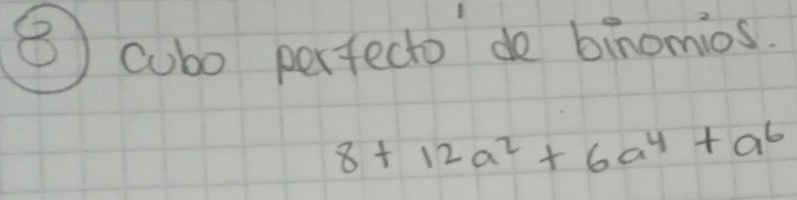 8 cubo perfecto de binomios.
8 + 12a² + 6a⁴ + a⁶